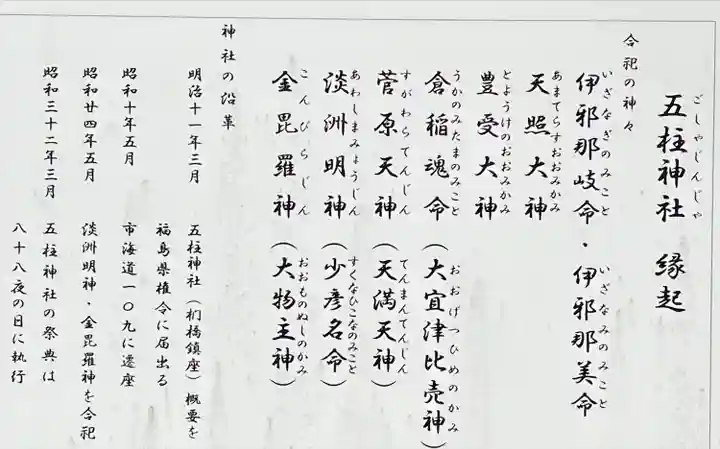 五柱神社 縁起
ごしゃじんじゃ
合祀の神々
伊邪那岐命・伊邪那美命
いざなぎのみこと いざなみのみこと
天照大神
あまてらすおおみかみ
豊受大神
とようけのおおみかみ
倉稲魂命(大宜津比売神)
うかのみたまのみこと おおげつひめのかみ
菅原天神(天満天神)
すがわらてんじん てんまんてんじん
淡洲明神(少彦名命)
あわしまみょうじん すくなひこなのみこと
金毘羅神(大物主神)
こんぴらじん おおものぬしのかみ
神社の沿革
明治十一年三月 五柱神社(椚橋鎮座)概要を
福島県権令に届出る
昭和十年五月 市海道一〇九に遷座
昭和廿四年五月 淡洲明神・金毘羅神を合祀
昭和三十二年三月 五柱神社の祭典は
八十八夜の日に執行